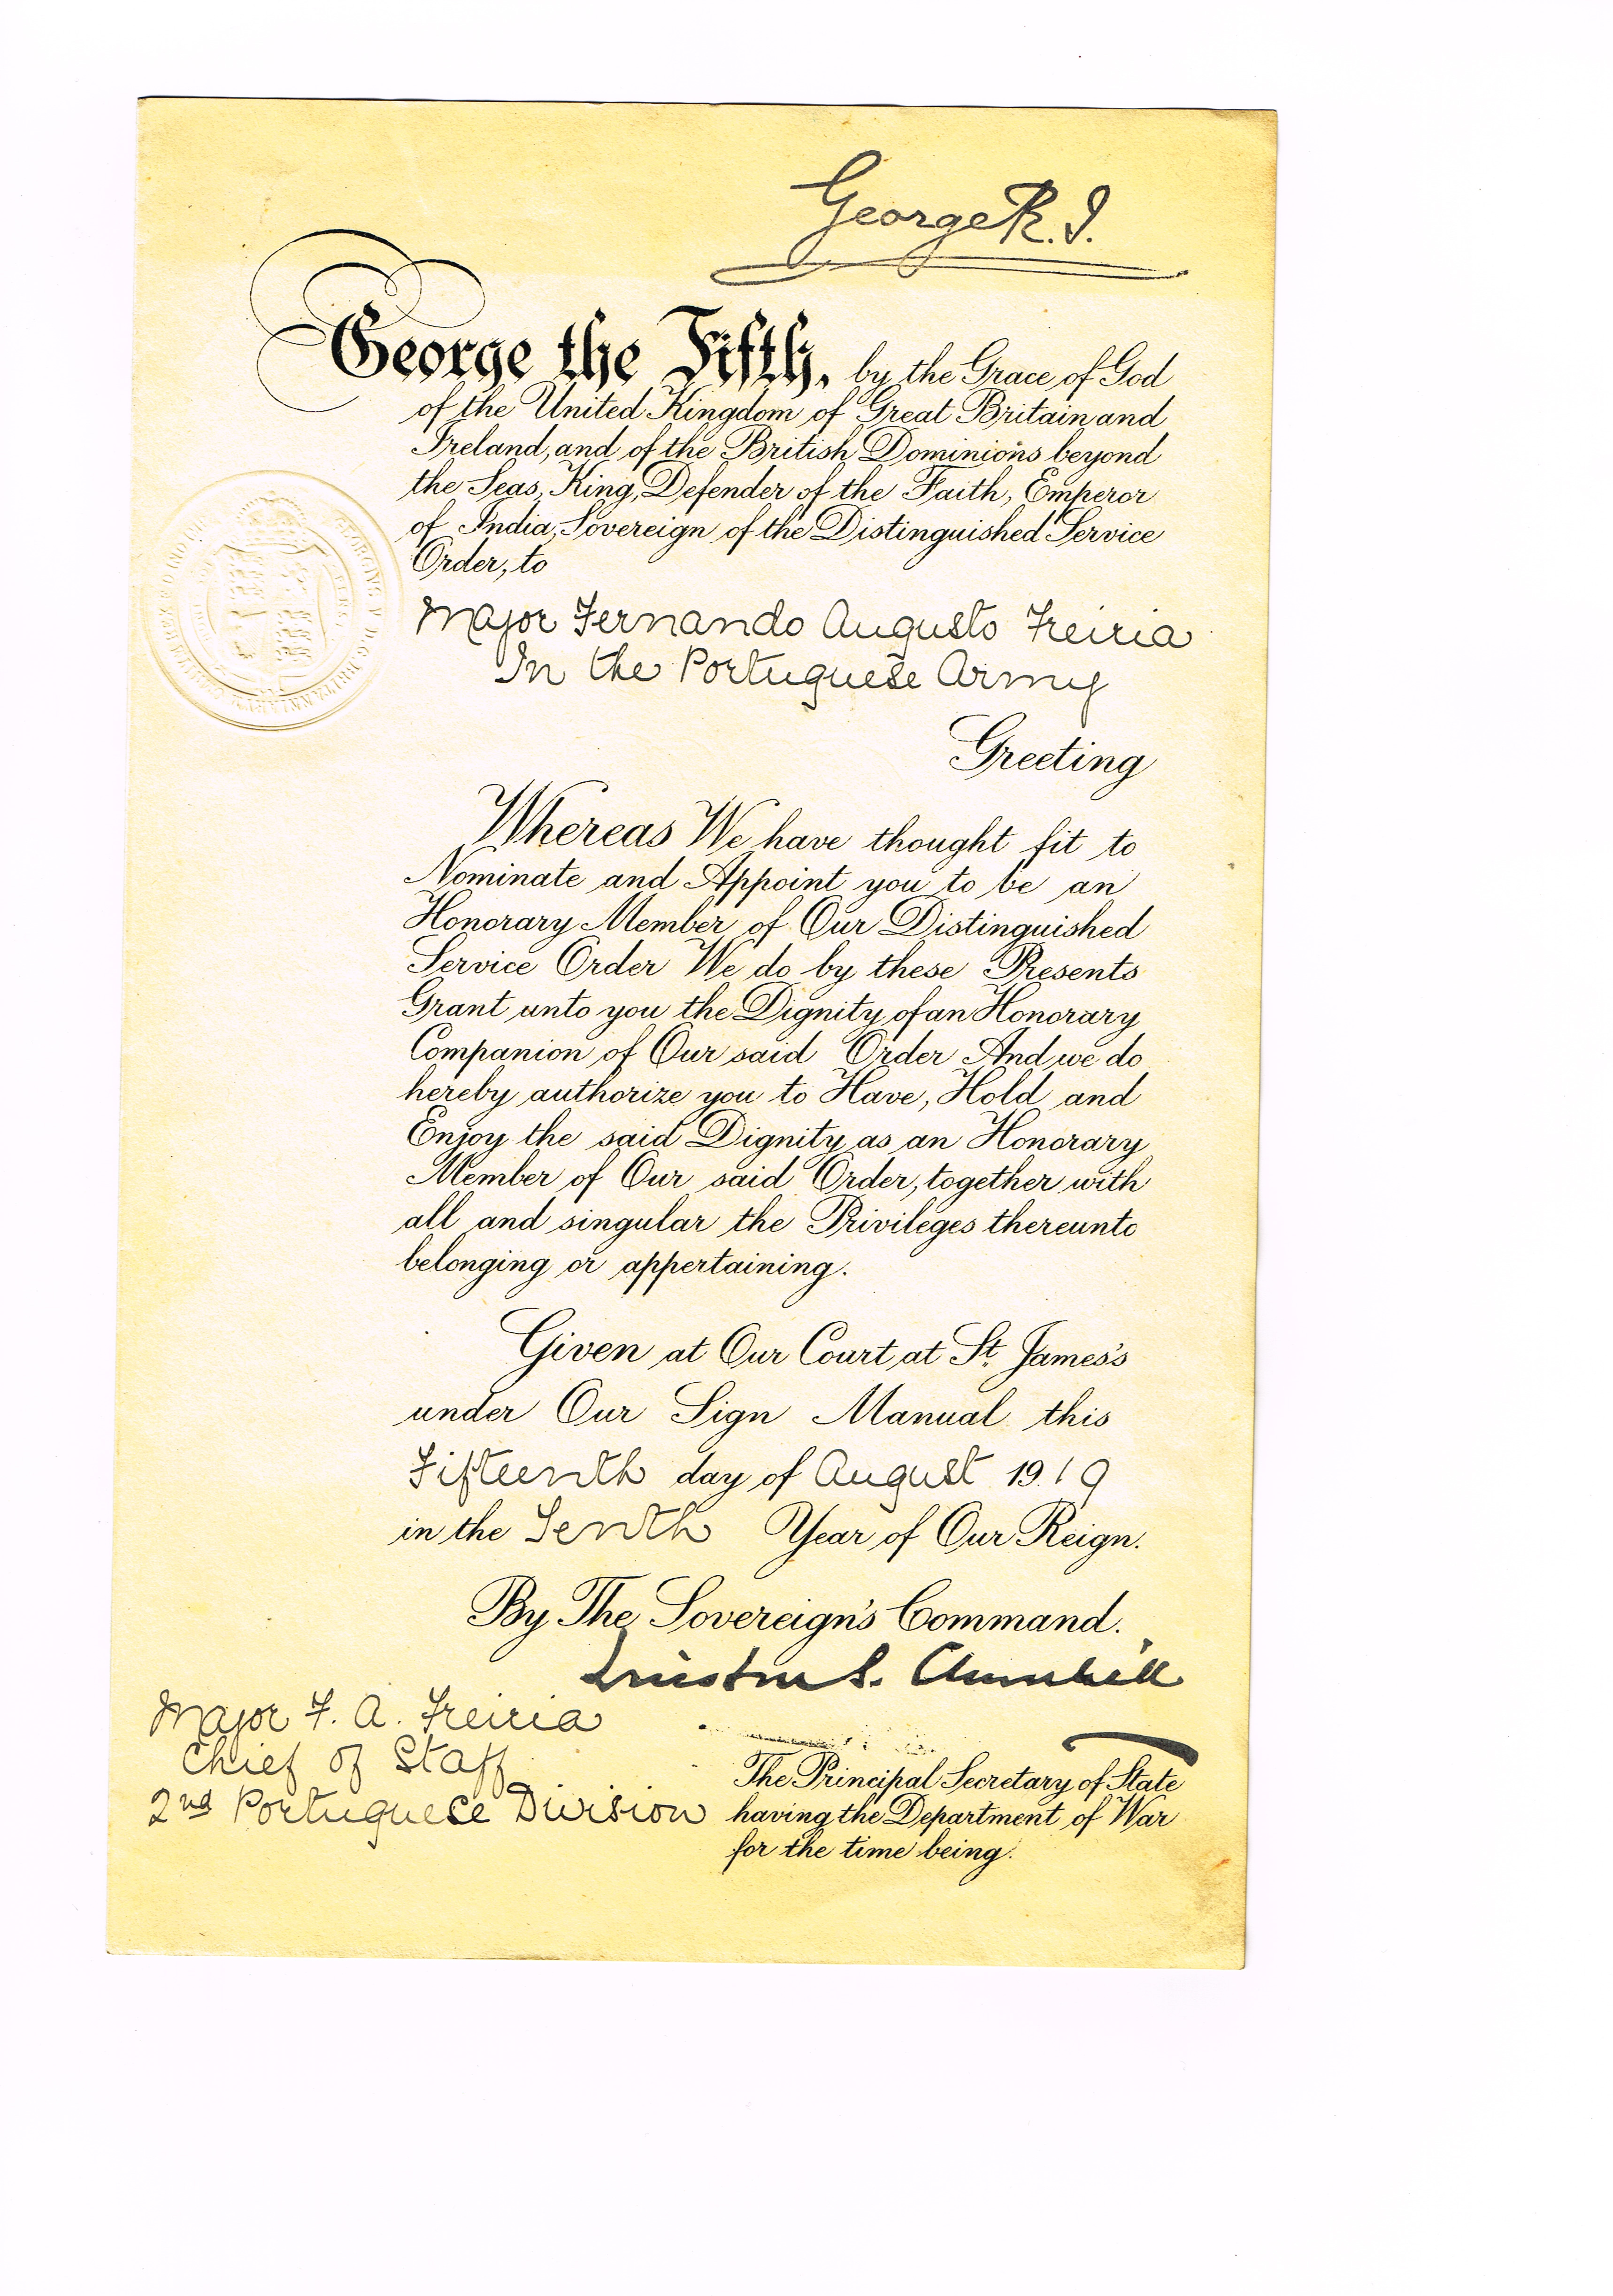 George R.I.
George the Fifth, by the Grace of God
of the United Kingdom of Great Britain and
Ireland, and of the British Dominions beyond
the Seas, King, Defender of the Faith, Emperor
of India, Sovereign of the Distinguished Service
Order, to
Major Fernando Augusto Freiria
In the Portuguese Army
Greeting
Whereas We have thought fit to
Nominate and Appoint you to be an
Honorary Member of Our Distinguished
Service Order We do by these Presents
Grant unto you the Dignity of an Honorary
Companion of Our said Order And we do
hereby authorize you to Have, Hold and
Enjoy the said Dignity as an Honorary
Member of Our said Order, together with
all and singular the Privileges thereunto
belonging or appertaining.
Given at Our Court at St. James's
under Our Sign Manual this
Fifteenth day of August 1919
in the Tenth Year of Our Reign.
By The Sovereign's Command.
Winston S. Churchill
Major F. A. Freiria
Chief of Staff
2nd Portuguese Division
The Principal Secretary of State
having the Department of War
for the time being.